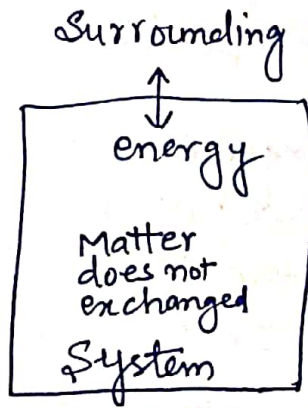 Surrounding
energy
Matter
does not
exchanged
System